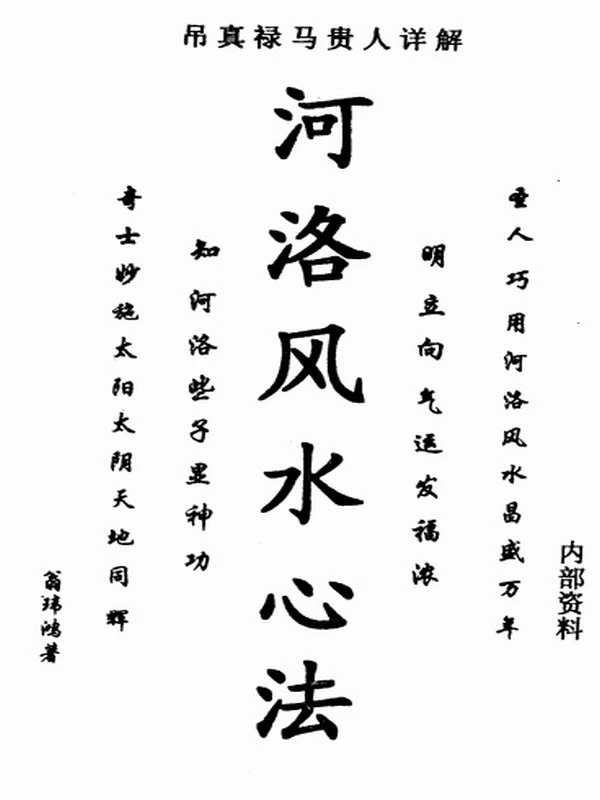 吊真禄马贵人详解
内部资料
圣人巧用河洛风水昌盛万年
明立向气运发福浓
河洛风水心法
知河洛些子显神功
奇士妙施太阳太阴天地同辉
翁玮鸿著